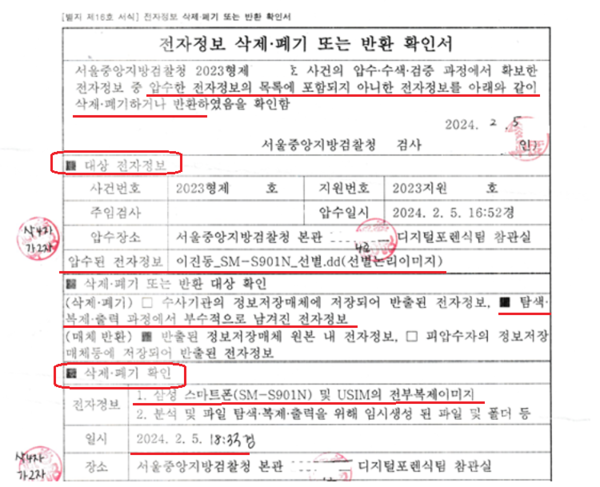 [별지 제16호 서식] 전자정보 삭제·폐기 또는 반환 확인서
전자정보 삭제·폐기 또는 반환 확인서
서울중앙지방검찰청 2023형제 사건의 압수·수색·검증 과정에서 확보한
전자정보 중 압수한 전자정보의 목록에 포함되지 아니한 전자정보를 아래와 같이
삭제·폐기하거나 반환하였음을 확인함
2024. 2. 5
서울중앙지방검찰청 검사
■ 대상 전자정보
사건번호 2023형제 호 지원번호 2023지원 호
주임검사 압수일시 2024. 2. 5. 16:52경
삭4자
가2자
압수장소 서울중앙지방검찰청 본관 디지털포렌식팀 참관실
압수된 전자정보 이진동_SM-S901N_선별.dd(선별논리이미지)
■ 삭제·폐기 또는 반환 대상 확인
(삭제·폐기) □ 수사기관의 정보저장매체에 저장되어 반출된 전자정보, ■ 탐색·
복제·출력 과정에서 부수적으로 남겨진 전자정보
(매체 반환) ■ 반출된 정보저장매체 원본 내 전자정보, □ 피압수자의 정보저장
매체등에 저장되어 반출된 전자정보
■ 삭제·폐기 확인
전자정보
1. 삼성 스마트폰(SM-S901N) 및 USIM의 전부복제이미지
2. 분석 및 파일 탐색·복제·출력을 위해 임시생성 된 파일 및 폴더 등
일시 2024. 2. 5. 18:33경
삭4자
가2자
장소 서울중앙지방검찰청 본관 디지털포렌식팀 참관실